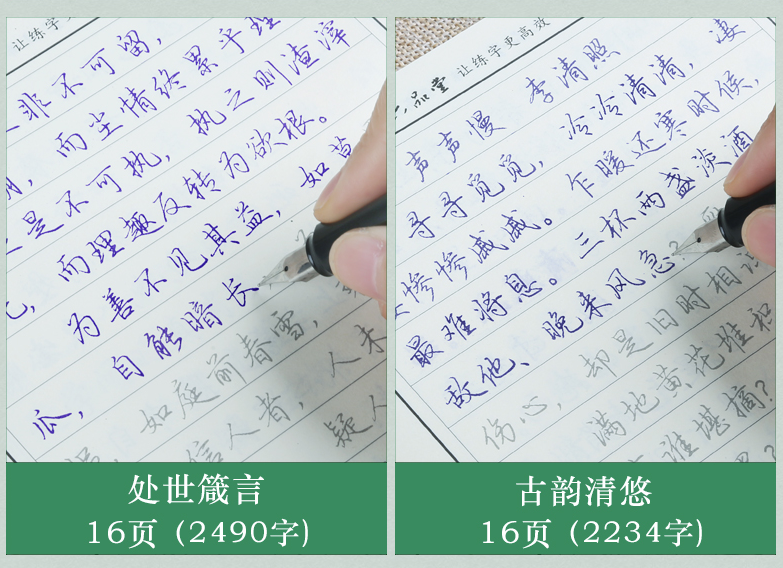 让练字更
非不可留，
而尘情终累乎理
是不可执，执之则渣滓
而理趣反转为欲根。
为善不见其益，如草
瓜，自能暗长
如庭前春雪，
信人者，人未
疑人
处世箴言
16页（2490字）
品堂 让练字更高效
声声慢 李清照
寻寻觅觅，冷冷清清，凄
惨惨戚戚。乍暖还寒时候，
最难将息。三杯两盏淡酒
敌他、晚来风急
伤心，却是旧时相识
满地黄花堆积
谁堪摘？
古韵清悠
16页（2234字）